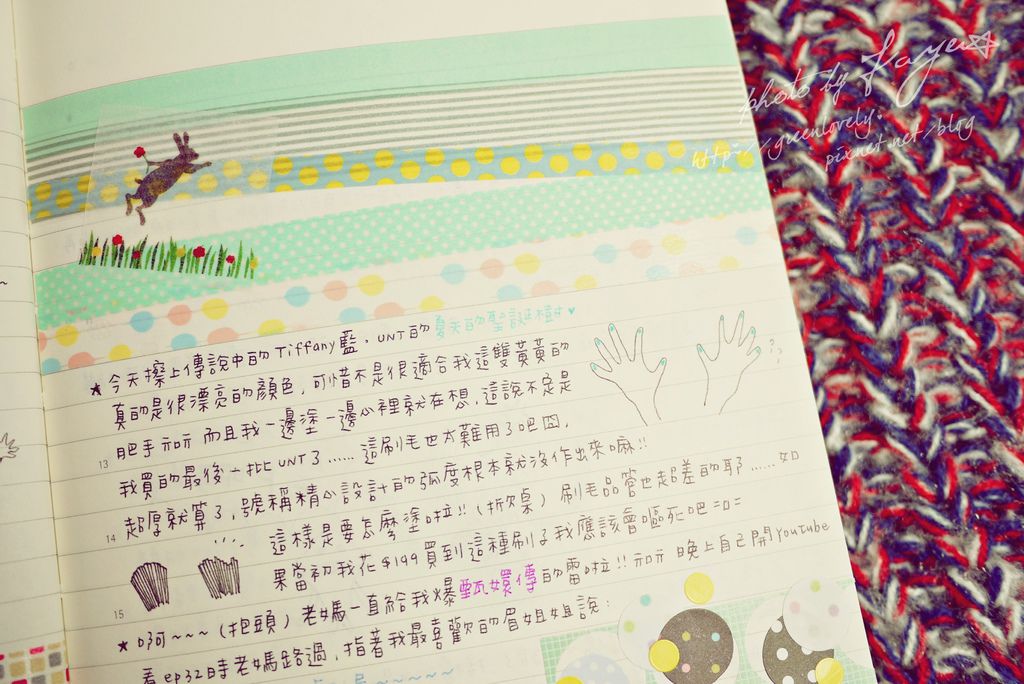 photo by Kaye
http://greenlovely.
pixnet.net/blog
★今天擦上傳說中的Tiffany藍，UNT的夏天的聖誕樹♥
真的是很漂亮的顏色，可惜不是很適合我這雙黃黃的
肥手 而且我一邊塗一邊心裡就在想，這說不定是
13
我買的最後一批UNT了……這刷毛也太難用了吧囧，
超厚就算了，號稱精心設計的弧度根本就沒作出來嘛!!
14
這樣是要怎麼塗啦!!(掀桌) 刷毛品管也超差的耶……如
果當初我花$199買到這種刷子我應該會嘔死吧=口=
15
★呵~~~(抱頭)老媽一直給我爆甄嬛傳的雷啦!! 晚上自己開Youtube
看ep32時老媽路過，指著我最喜歡的眉姐姐說：